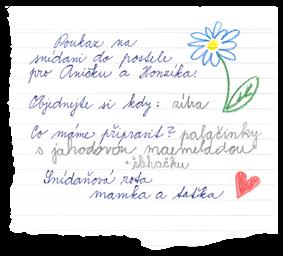 Poukaz na
snídani do postele
pro Aničku a Honzíka!
Objednejte si kdy: zítra
Co máme připravit? palačinky
s jahodovou marmeládou
+ šlehačku
Snídaňová rota
mamka a taťka